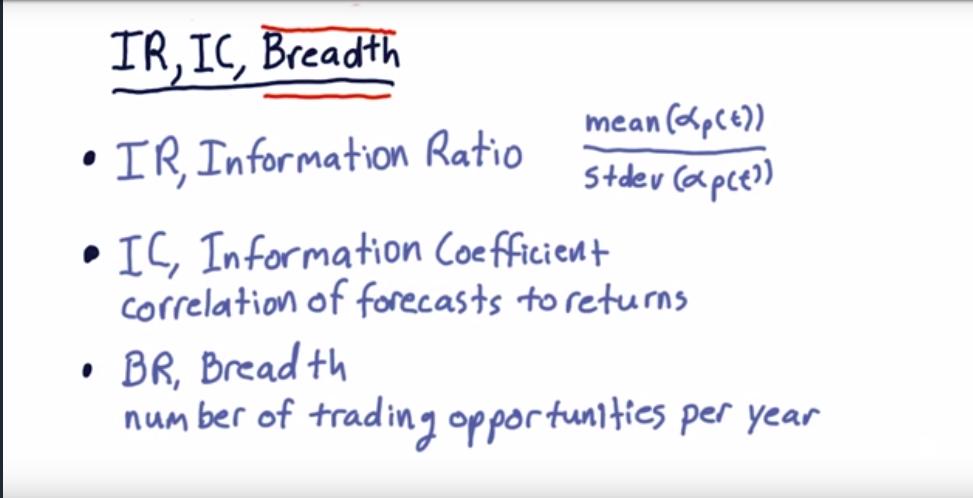 IR, IC, Breadth
• IR, Information Ratio mean(αp(t))
stdev(αp(t))
• IC, Information Coefficient
correlation of forecasts to returns
• BR, Breadth
number of trading opportunities per year